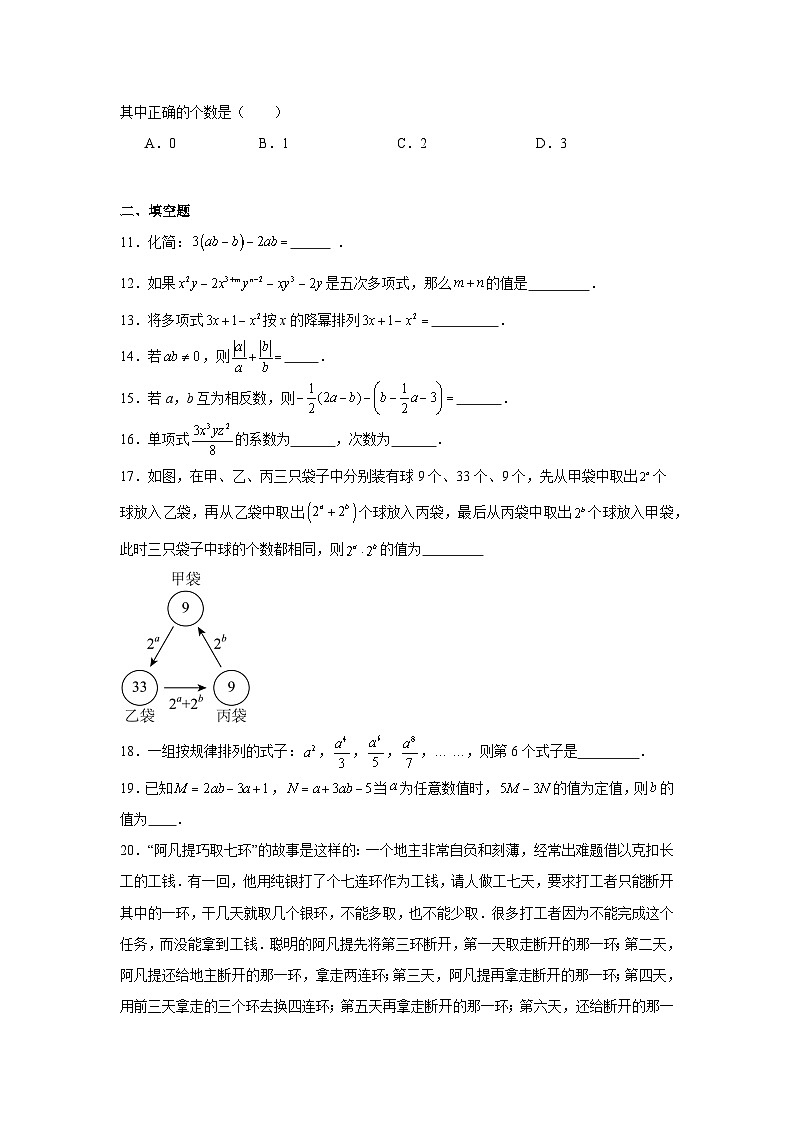 其中正确的个数是（  ）
A．0 B．1 C．2 D．3
二、填空题
11．化简：3(ab－b)－2ab＝______ ．
12．如果x²y－2x³⁺ᵐyⁿ⁻²－xy³－2y是五次多项式，那么m＋n的值是_________．
13．将多项式3x＋1－x²按x的降幂排列3x＋1－x²＝__________．
14．若ab≠0，则|a|/a＋|b|/b＝_____．
15．若a，b互为相反数，则－1/2(2a－b)－(b－1/2a－3)＝_______．
16．单项式3x³yz²/8的系数为_______，次数为_______．
17．如图，在甲、乙、丙三只袋子中分别装有球9个、33个、9个，先从甲袋中取出2ᵃ个
球放入乙袋，再从乙袋中取出(2ᵃ＋2ᵇ)个球放入丙袋，最后从丙袋中取出2ᵇ个球放入甲袋，
此时三只袋子中球的个数都相同，则2ᵃ·2ᵇ的值为_________
甲袋
9
2ᵃ 2ᵇ
33 9
2ᵃ+2ᵇ
乙袋 丙袋
18．一组按规律排列的式子：a²，a⁴/3，a⁶/5，a⁸/7，… …，则第6个式子是_________．
19．已知M＝2ab－3a＋1，N＝a＋3ab－5当a为任意数值时，5M－3N的值为定值，则b的
值为____．
20．“阿凡提巧取七环”的故事是这样的：一个地主非常自负和刻薄，经常出难题借以克扣长
工的工钱．有一回，他用纯银打了个七连环作为工钱，请人做工七天，要求打工者只能断开
其中的一环，干几天就取几个银环，不能多取，也不能少取．很多打工者因为不能完成这个
任务，而没能拿到工钱．聪明的阿凡提先将第三环断开，第一天取走断开的那一环；第二天，
阿凡提还给地主断开的那一环，拿走两连环；第三天，阿凡提再拿走断开的那一环；第四天，
用前三天拿走的三个环去换四连环；第五天再拿走断开的那一环；第六天，还给断开的那一